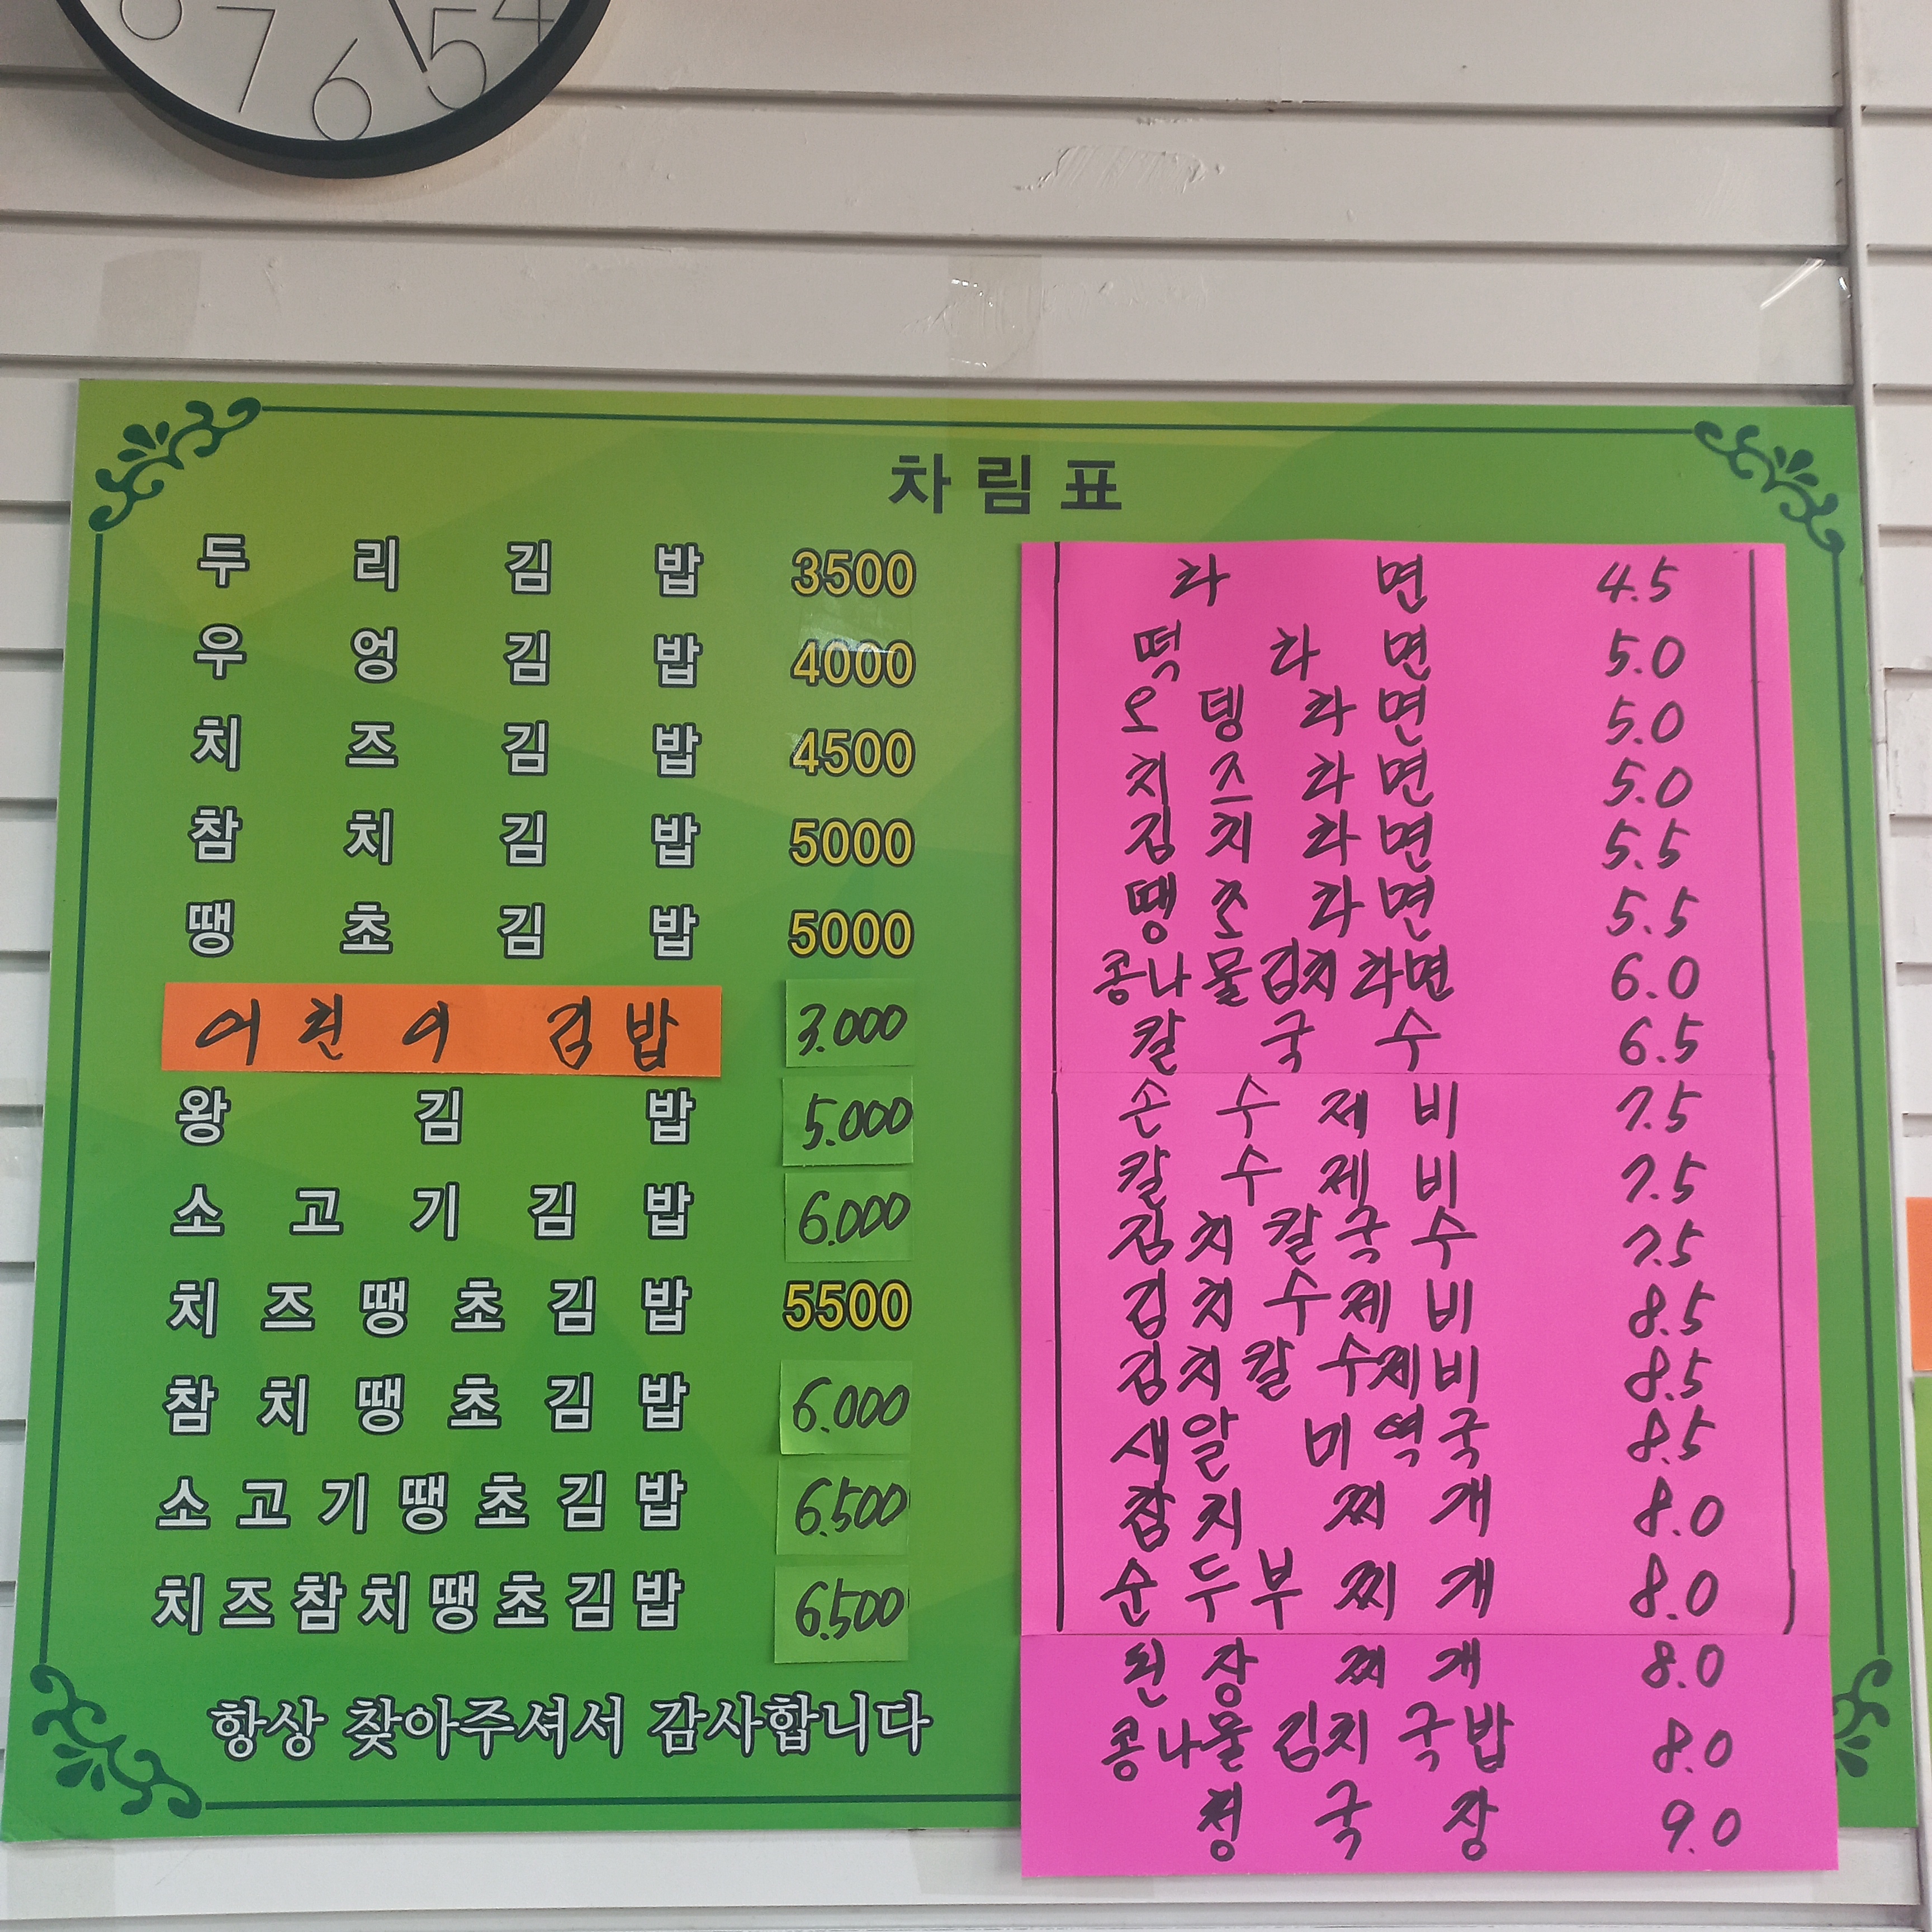 8 7 6 5 4
차림표
두리김밥 3500
우엉김밥 4000
치즈김밥 4500
참치김밥 5000
땡초김밥 5000
어린이 김밥 3.000
왕김밥 5.000
소고기김밥 6.000
치즈땡초김밥 5500
참치땡초김밥 6.000
소고기땡초김밥 6.500
치즈참치땡초김밥 6.500
항상 찾아주셔서 감사합니다
라면 4.5
떡라면 5.0
오뎅라면 5.0
치즈라면 5.0
김치라면 5.5
땡초라면 5.5
콩나물김치라면 6.0
칼국수 6.5
손수제비 7.5
칼수제비 7.5
김치칼국수 7.5
김치수제비 8.5
김치칼수제비 8.5
새알 미역국 8.5
참치 찌개 8.0
순두부 찌개 8.0
된장 찌개 8.0
콩나물 김치 국밥 8.0
청국장 9.0